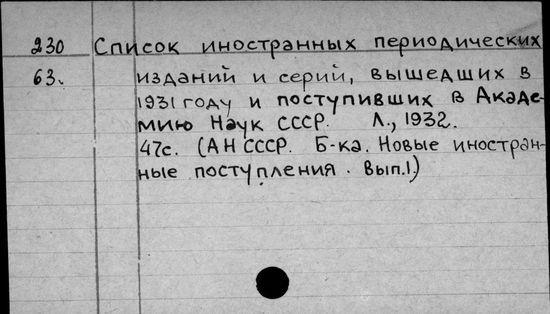 230 Список иностранных периодических
63. изданий и серий, вышедших в
1931 году и поступивших в Акаде-
мию Наук СССР. Л., 1932.
47с. (АН СССР. Б-ка. Новые иностран-
ные поступления. Вып.1.)